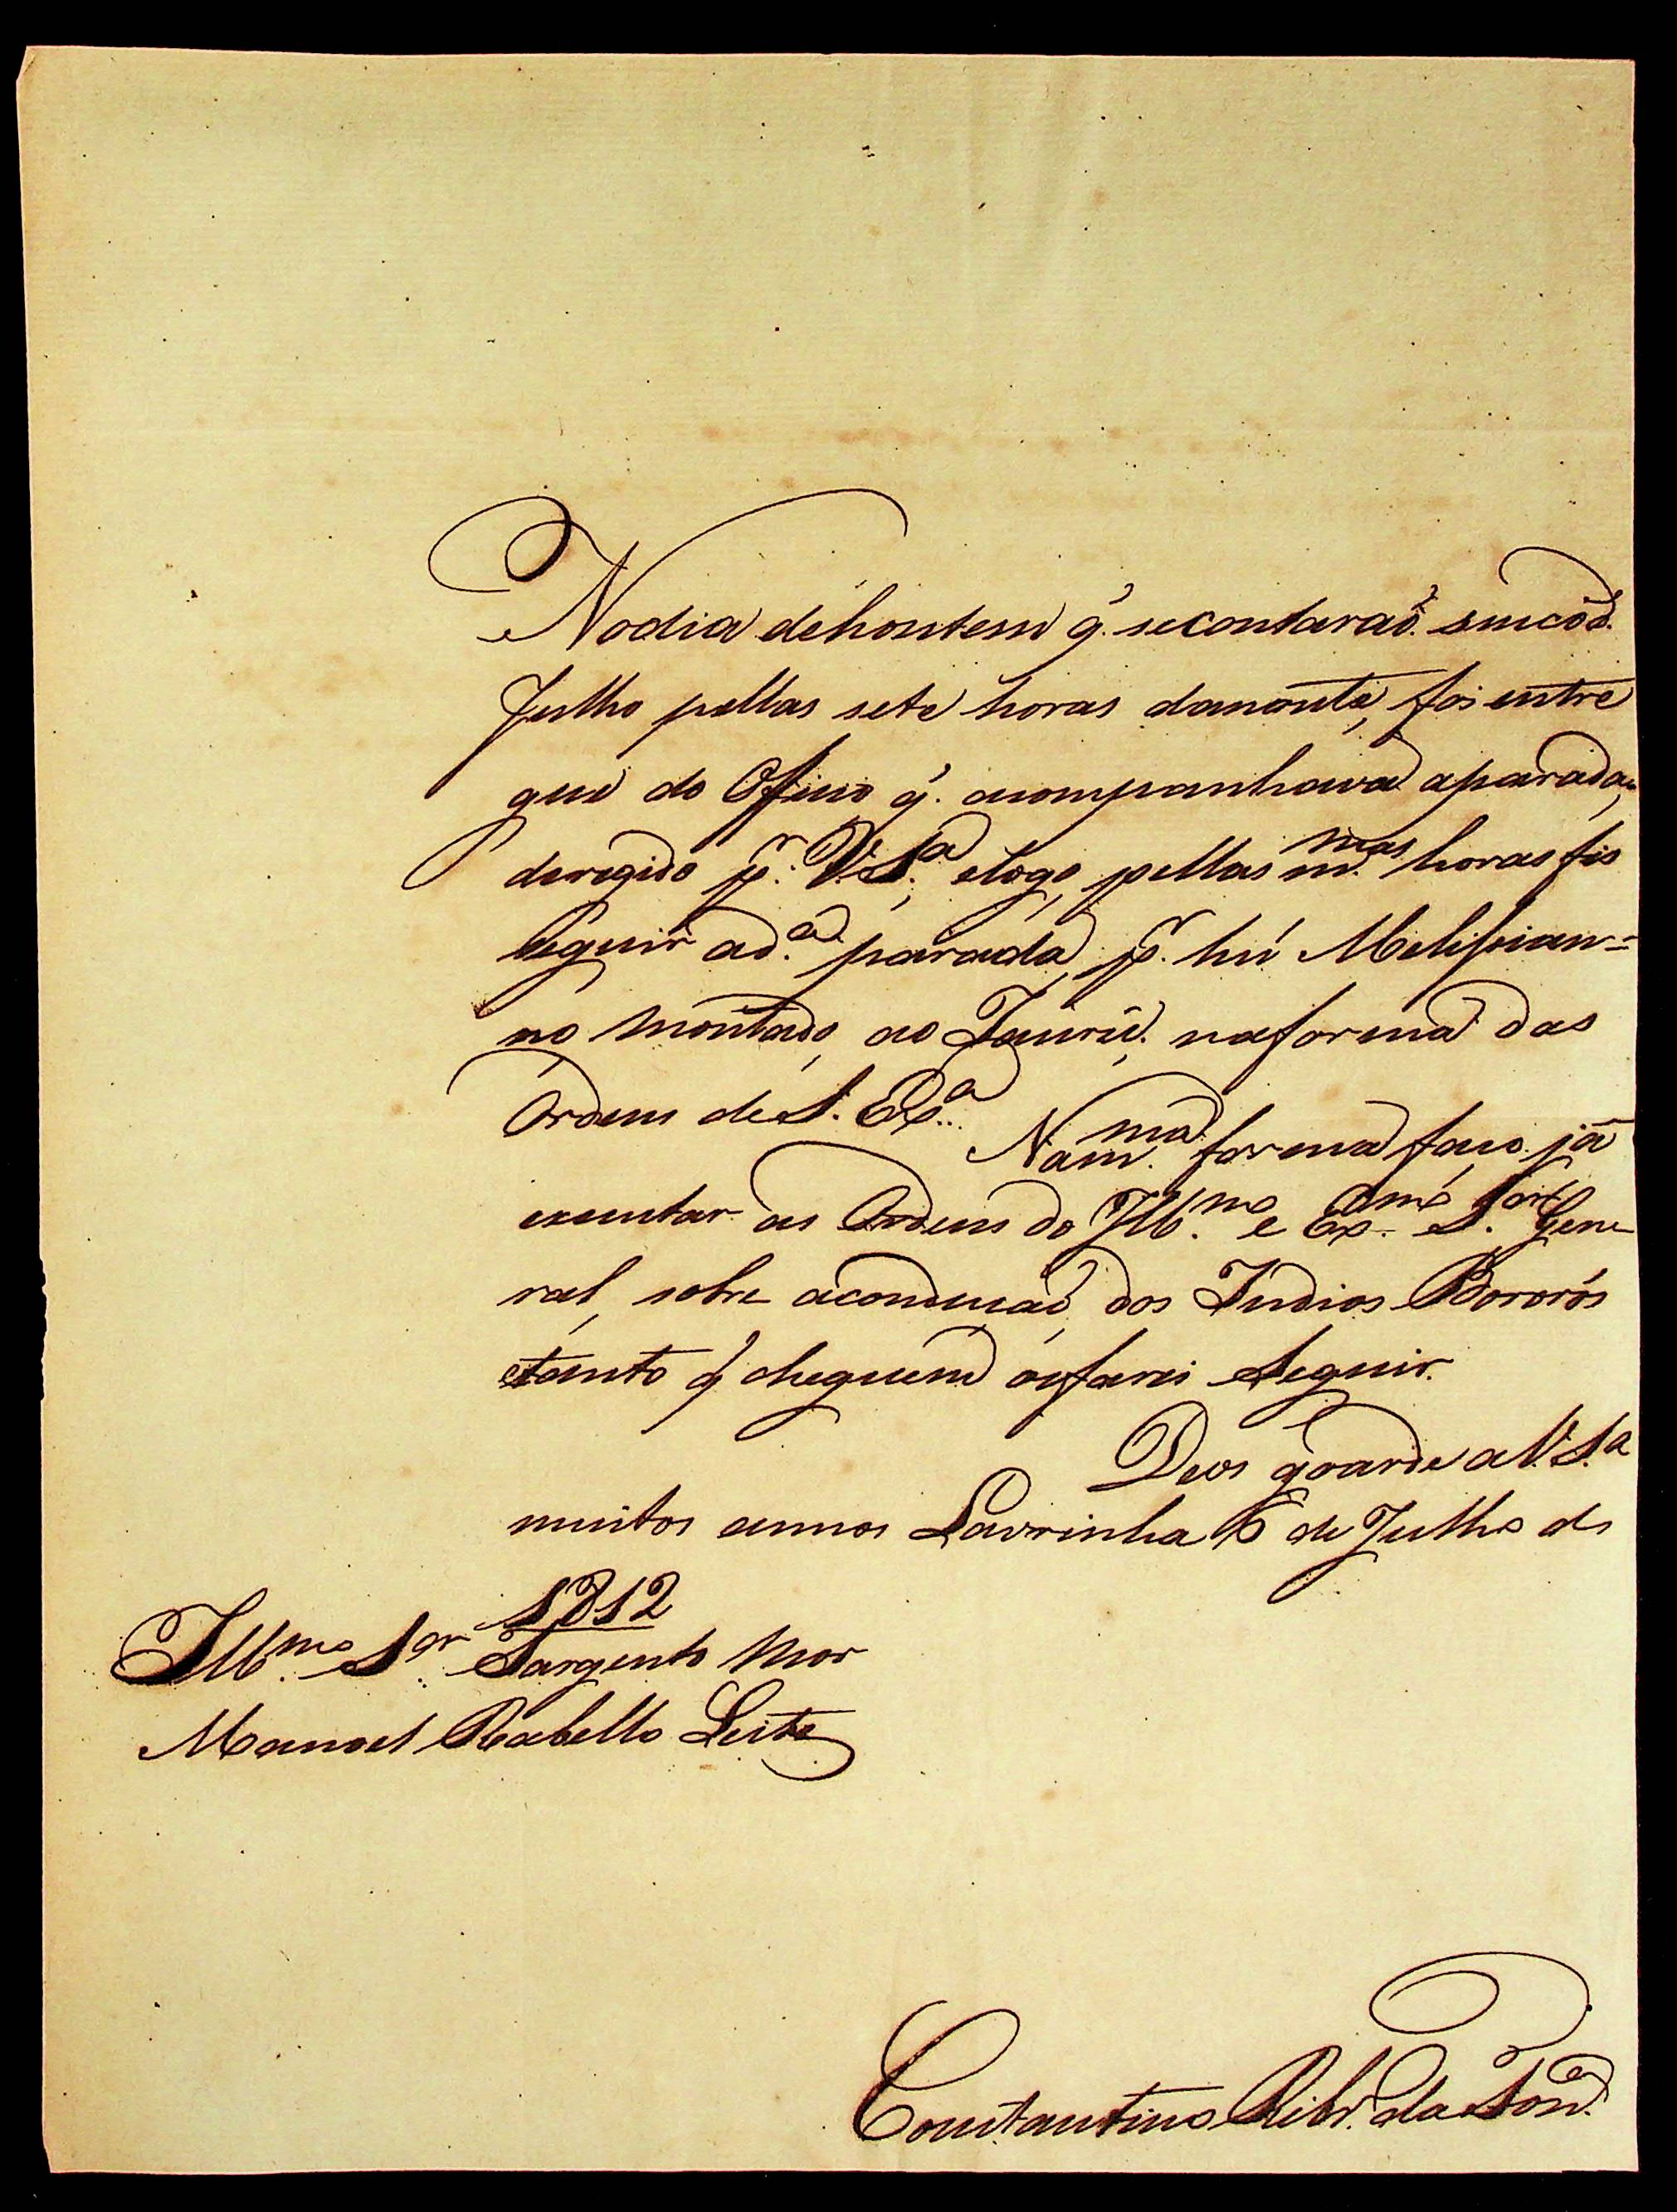 Nodia dehontem q̃. secontaraõ. sinco d.
Julho pellas sete horas danoute, foi entre
gue do Oficio q̃. acompanhava aparada,
deregido p.r V.S.a, elogo pellas m.mas horas fis
seguir ad.a parada, p.r hú Melisian=
no montado, ao Jaurú, naforma das
Ordens de S. Ex.a
Nam.ma forma faço já
executar as Ordens do Ill.mo e Ex.mo S.or Gene
ral, sobre aconduçaõ, dos Indios Bororós
etanto q̃ cheguem osfarei seguir.
Deos goarde a V.S.a
muitos annos Lavrinha 6 de Julho de
1812
Ill.mo S.or Sargento Mor
Manoel Rabello Leite
Constantino Ribr.o da Fon.ca